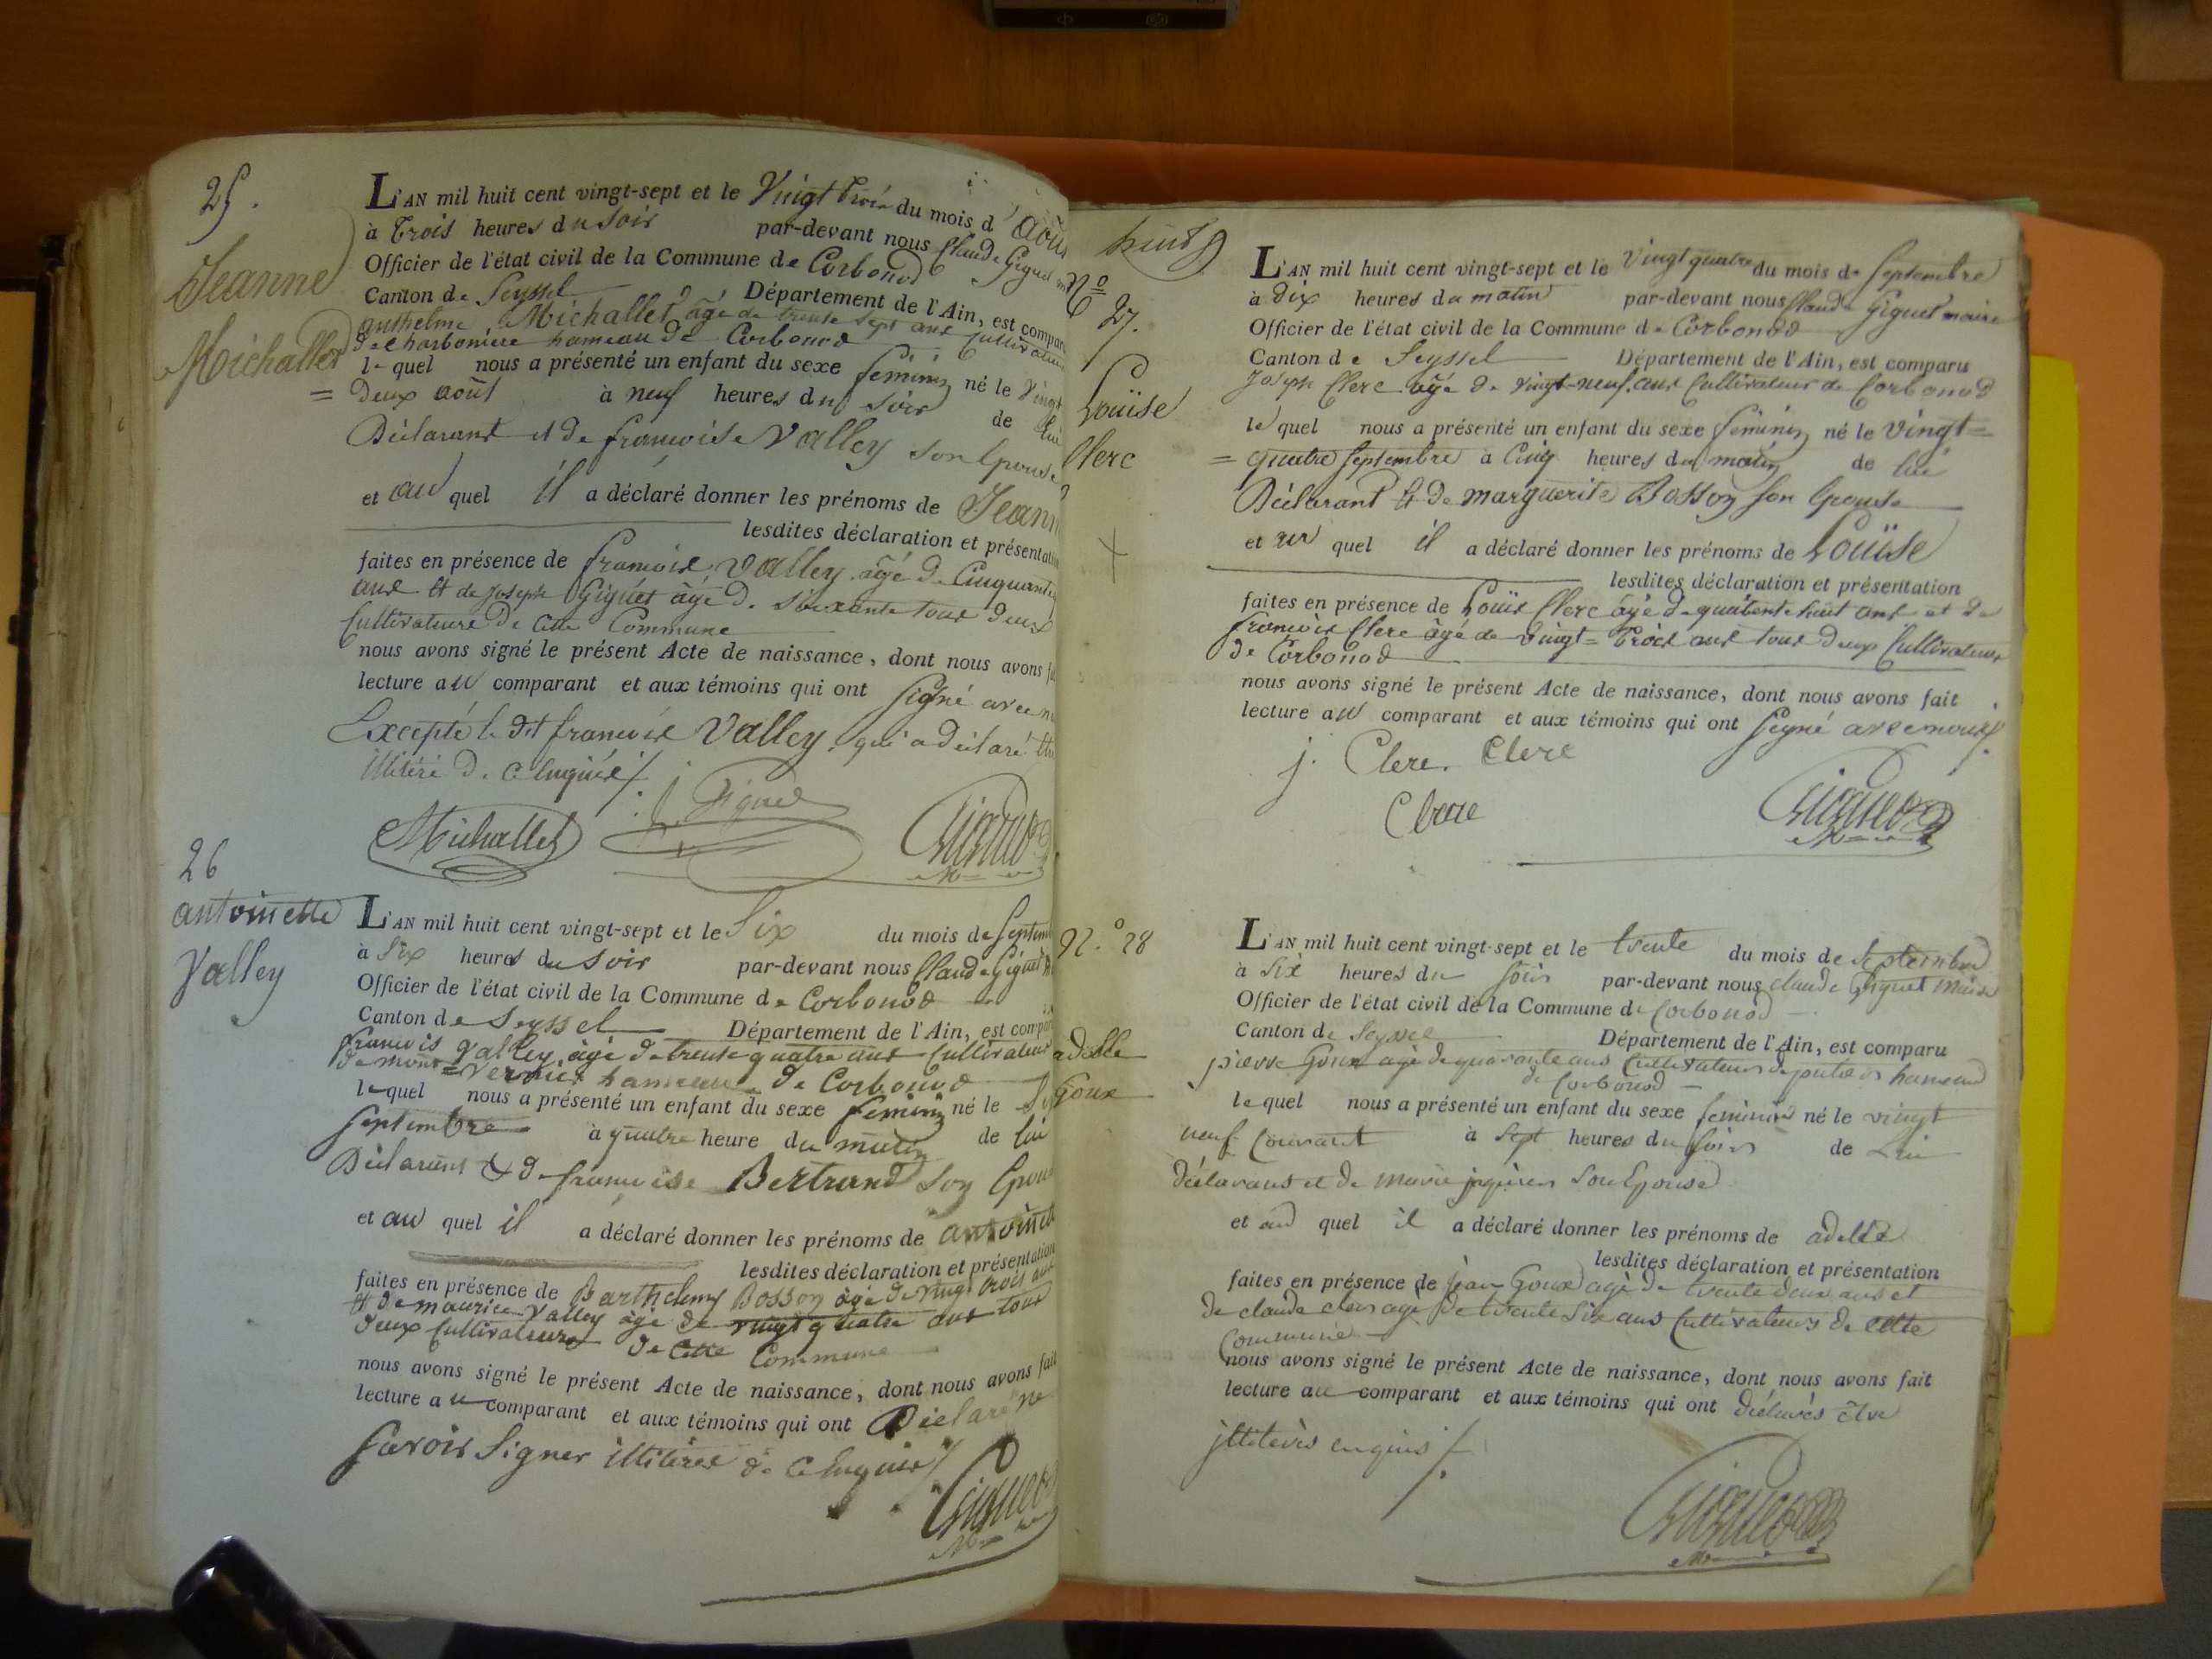 25.
Jeanne
Michallet
L'AN mil huit cent vingt-sept et le Vingt trois du mois d'août
à Trois heures du Soir par-devant nous Claude Giguet
Officier de l'état civil de la Commune de Corbonod
Canton de Seyssel Département de l'Ain, est compar
anthelme Michallet, âgé de trente sept ans Cultivateur
de charbonière hameau de Corbonod
lequel nous a présenté un enfant du sexe féminin né le vingt
= deux août à neuf heures du soir de lui
Déclarant et de francoise Valley son Epouse
et au quel il a déclaré donner les prénoms de Jeann
lesdites déclaration et présentation
faites en présence de francois Valley âgé de Cinquante
ans et de Joseph Giguet âgé de soixante tous deux
Cultivateurs de cette Commune
nous avons signé le présent Acte de naissance, dont nous avons
lecture au comparant et aux témoins qui ont signé avec
Excepté le dit francois Valley, qui a déclaré
illitéré de ce enquis /.
Michallet J. Giguet Giguet
26
antoinette
Valley
L'AN mil huit cent vingt-sept et le Six du mois de Septem
à Six heures du Soir par-devant nous Claude Giguet
Officier de l'état civil de la Commune de Corbonod
Canton de Seyssel Département de l'Ain, est compar
francois Valley, âgé de trente quatre ans Cultivateur
de hameau de Corbonod
lequel nous a présenté un enfant du sexe feminin né le Six
Septembre à quatre heure du matin de lui
Déclarant & de francoise Bertrand son Epou
et au quel il a déclaré donner les prénoms de antoinett
lesdites déclaration et présentation
faites en présence de Barthelemy Bosson âgé de vingt trois ans
et de maurice Valley âgé de vingt quatre ans tous
deux Cultivateurs de Cette Commune
nous avons signé le présent Acte de naissance, dont nous avons fait
lecture au comparant et aux témoins qui ont Déclaré ne
savoir Signer illitérés de ce enquis /
Giguet
huit
Nº 27.
Louïse
Clerc
L'AN mil huit cent vingt-sept et le vingt quatre du mois de Septembre
à dix heures du matin par-devant nous Claude Giguet maire
Officier de l'état civil de la Commune de Corbonod
Canton de Seyssel Département de l'Ain, est comparu
Joseph Clerc âgé de vingt-neuf ans Cultivateur de Corbonod
lequel nous a présenté un enfant du sexe féminin né le vingt=
= quatre Septembre à Cinq heures du matin de lui
Déclarant & de marguerite Bosson son Epouse
et au quel il a déclaré donner les prénoms de Louïse
lesdites déclaration et présentation
faites en présence de Louis Clerc âgé de quarente huit ans et de
francois Clerc âgé de vingt=trois ans tous deux Cultivateurs
de Corbonod
nous avons signé le présent Acte de naissance, dont nous avons fait
lecture au comparant et aux témoins qui ont signé avec nous /.
j. Clerc. Clerc
Clerc
Giguet
N.º 28
adelle
Goux
L'AN mil huit cent vingt-sept et le trente du mois de Septembre
à Six heures du soir par-devant nous claude Giguet Maire
Officier de l'état civil de la Commune de Corbonod
Canton de Seyssel Département de l'Ain, est comparu
pierre Goux agé de quarante ans Cultivateur de hameau
de Corbonod
lequel nous a présenté un enfant du sexe feminin né le vingt
neuf Courant à Sept heures du soir de Lui
déclarant et de marie Son Epouse
et au quel il a déclaré donner les prénoms de adelle
lesdites déclaration et présentation
faites en présence de jean Goux agé de trente deux ans et
de claude clerc agé de trente Six ans Cultivateurs de cette
Commune
nous avons signé le présent Acte de naissance, dont nous avons fait
lecture au comparant et aux témoins qui ont déclarés être
enquis /.
Giguet